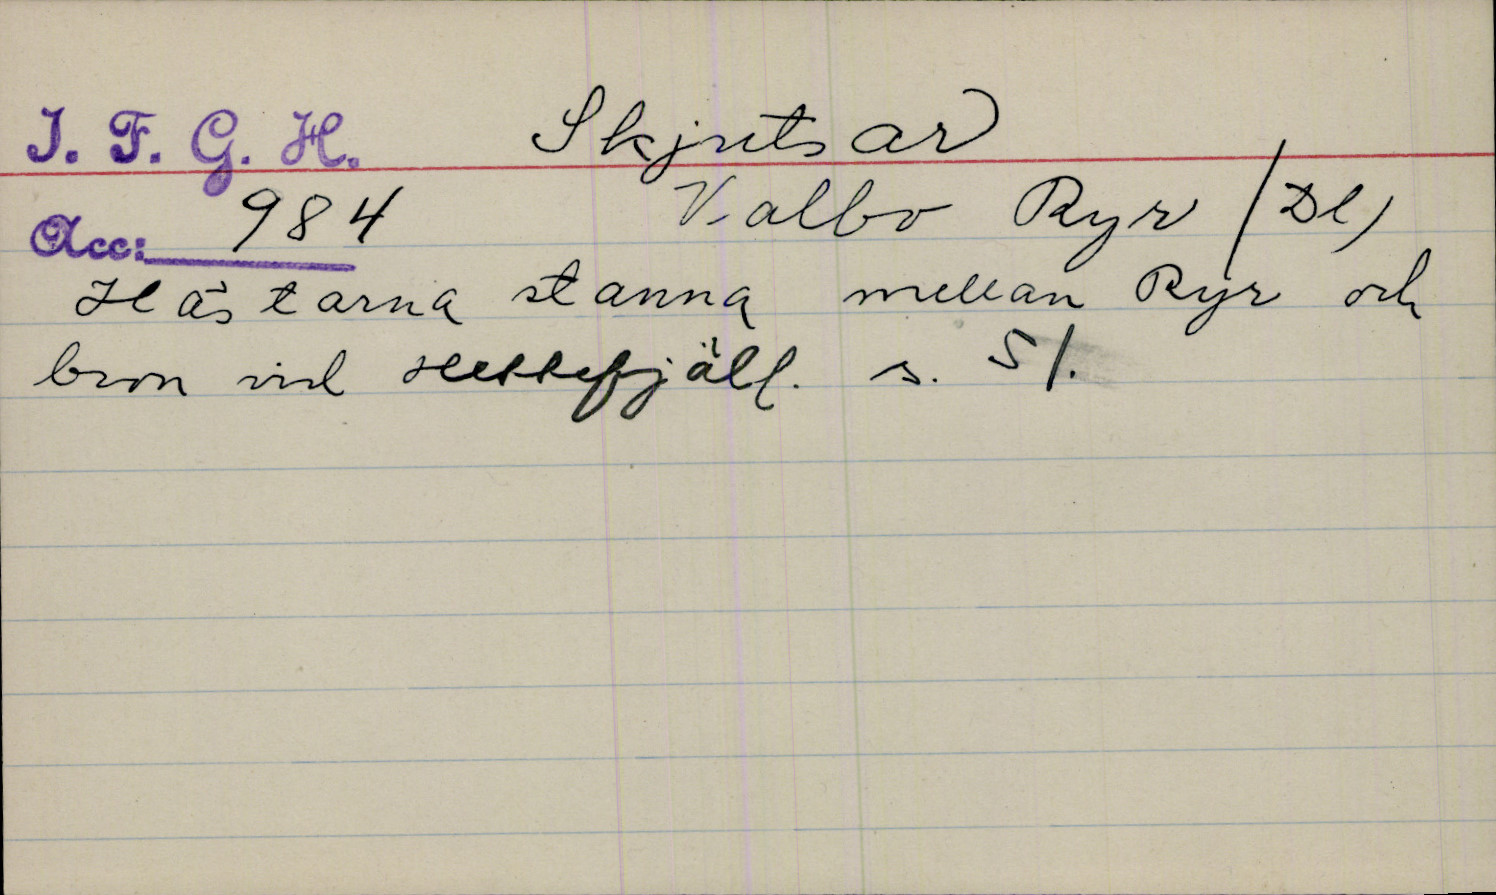 I. F. G. H. Skjutsar
Acc: 984 Valbo Ryr (Dl)
Hästarna stanna mellan Ryr och
bron vid Hettefjäll. s. 51.